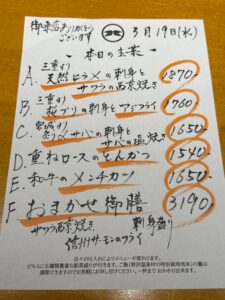 御来店ありがとう
ございます
3月19日(水)
-本日の主菜-
A. 三重より
天然ヒラメの刺身と
サワラの西京焼き 1870-
B. 三重より
桜ブリの刺身とアジフライ 1760
C. 宮城より
サバの塩焼き 1650-
D. 重ねロースのとんかつ 1540
E. 和牛のメンチカツ 1650-
F. おまかせ御膳 3190-
サワラ西京焼き 刺身盛り
信州サーモンのフライ
日々の仕入れによりメニューが変わります。